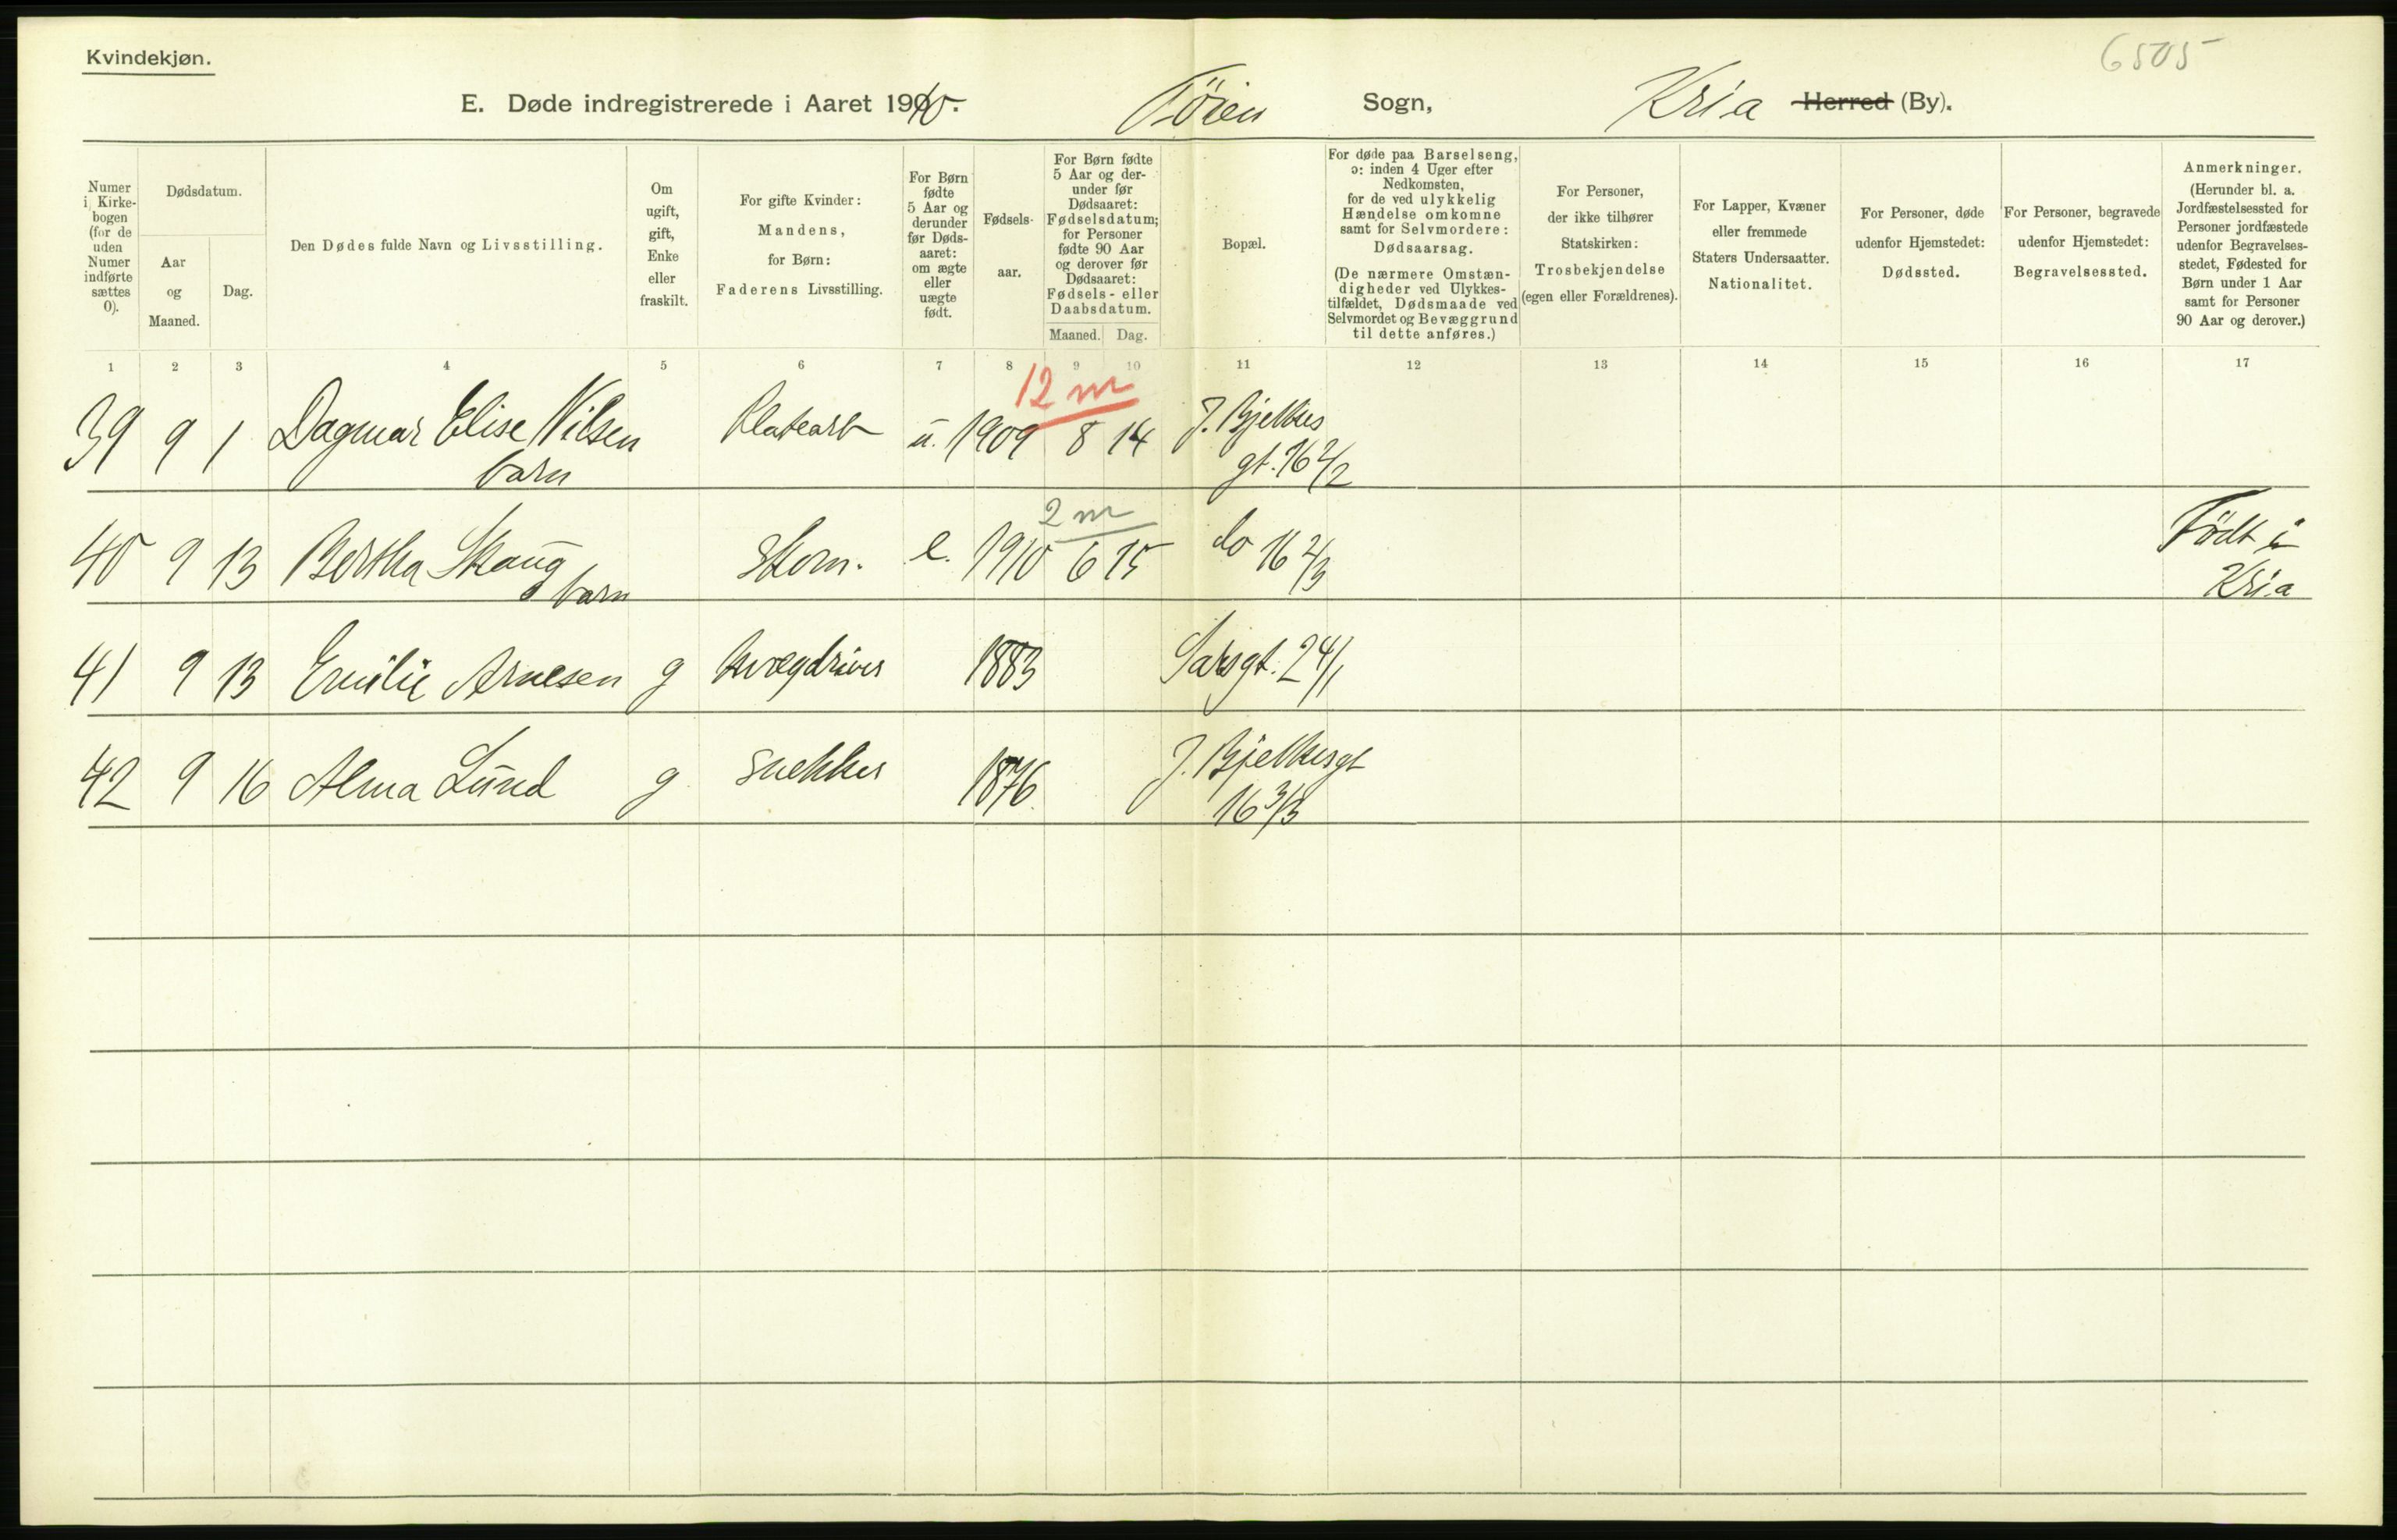 Kvindekjøn.
6505
E. Døde indregistrerede i Aaret 1910. Tøien Sogn, Kria Herred (By).
Numer i Kirkebogen (for de uden Numer indførte sættes 0).
Dødsdatum.
Aar og Maaned.
Dag.
Den Dødes fulde Navn og Livsstilling.
Om ugift, gift, Enke eller fraskilt.
For gifte Kvinder: Mandens, for Børn: Faderens Livsstilling.
For Børn fødte 5 Aar og derunder før Dødsaaret: om ægte eller uægte født.
Fødselsaar.
For Børn fødte 5 Aar og derunder før Dødsaaret: Fødselsdatum; for Personer fødte 90 Aar og derover før Dødsaaret: Fødsels- eller Daabsdatum.
Maaned. Dag.
Bopæl.
For døde paa Barselseng, ɔ: inden 4 Uger efter Nedkomsten, for de ved ulykkelig Hændelse omkomne samt for Selvmordere: Dødsaarsag.
(De nærmere Omstændigheder ved Ulykkestilfældet, Dødsmaade ved Selvmordet og Bevæggrund til dette anføres.)
For Personer, der ikke tilhører Statskirken: Trosbekjendelse (egen eller Forældrenes).
For Lapper, Kvæner eller fremmede Staters Undersaatter. Nationalitet.
For Personer, døde udenfor Hjemstedet: Dødssted.
For Personer, begravede udenfor Hjemstedet: Begravelsessted.
Anmerkninger.
(Herunder bl. a. Jordfæstelsessted for Personer jordfæstede udenfor Begravelsesstedet, Fødested for Børn under 1 Aar samt for Personer 90 Aar og derover.)
1 2 3 4 5 6 7 8 9 10 11 12 13 14 15 16 17
12 m
39 9 1 Dagmar Elise Nilsen u. 1909 8 14 J. Bjelkes
barn gt. 16 2/2
2 m
40 9 13 Bertha Skaug Skom. e. 1910 6 15 do 16 2/3 Födt i
barn Kria
41 9 13 Emilie Arnesen g kvægdriver 1883 Sarsgt. 24/1
42 9 16 Alma Lund g snekker 1876 J. Bjelkesgt
16 3/3